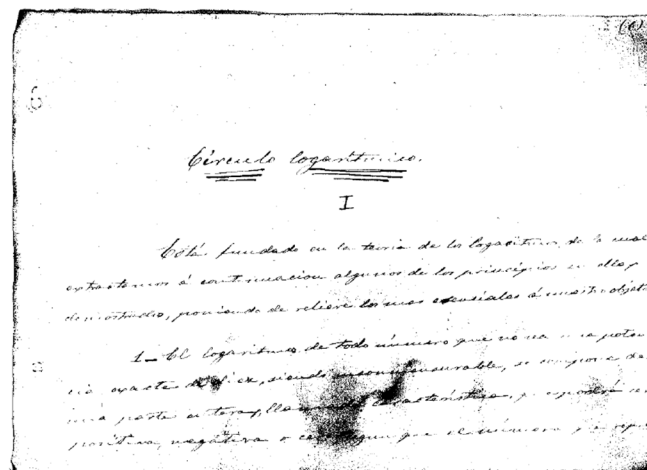 Círculo logarítmico.
I
Está fundado en la teoría de los logaritmos de la cual
extractamos á continuacion algunos de los principios en ella
demostrados, poniendo de relieve los mas esenciales á nuestro objeto
1_ El logaritmo de todo número que no sea una poten
cia exacta de diez, siendo inconmensurable, se compone de
una parte entera, llamada característica, que podrá ser
positiva, negativa o segun que el número